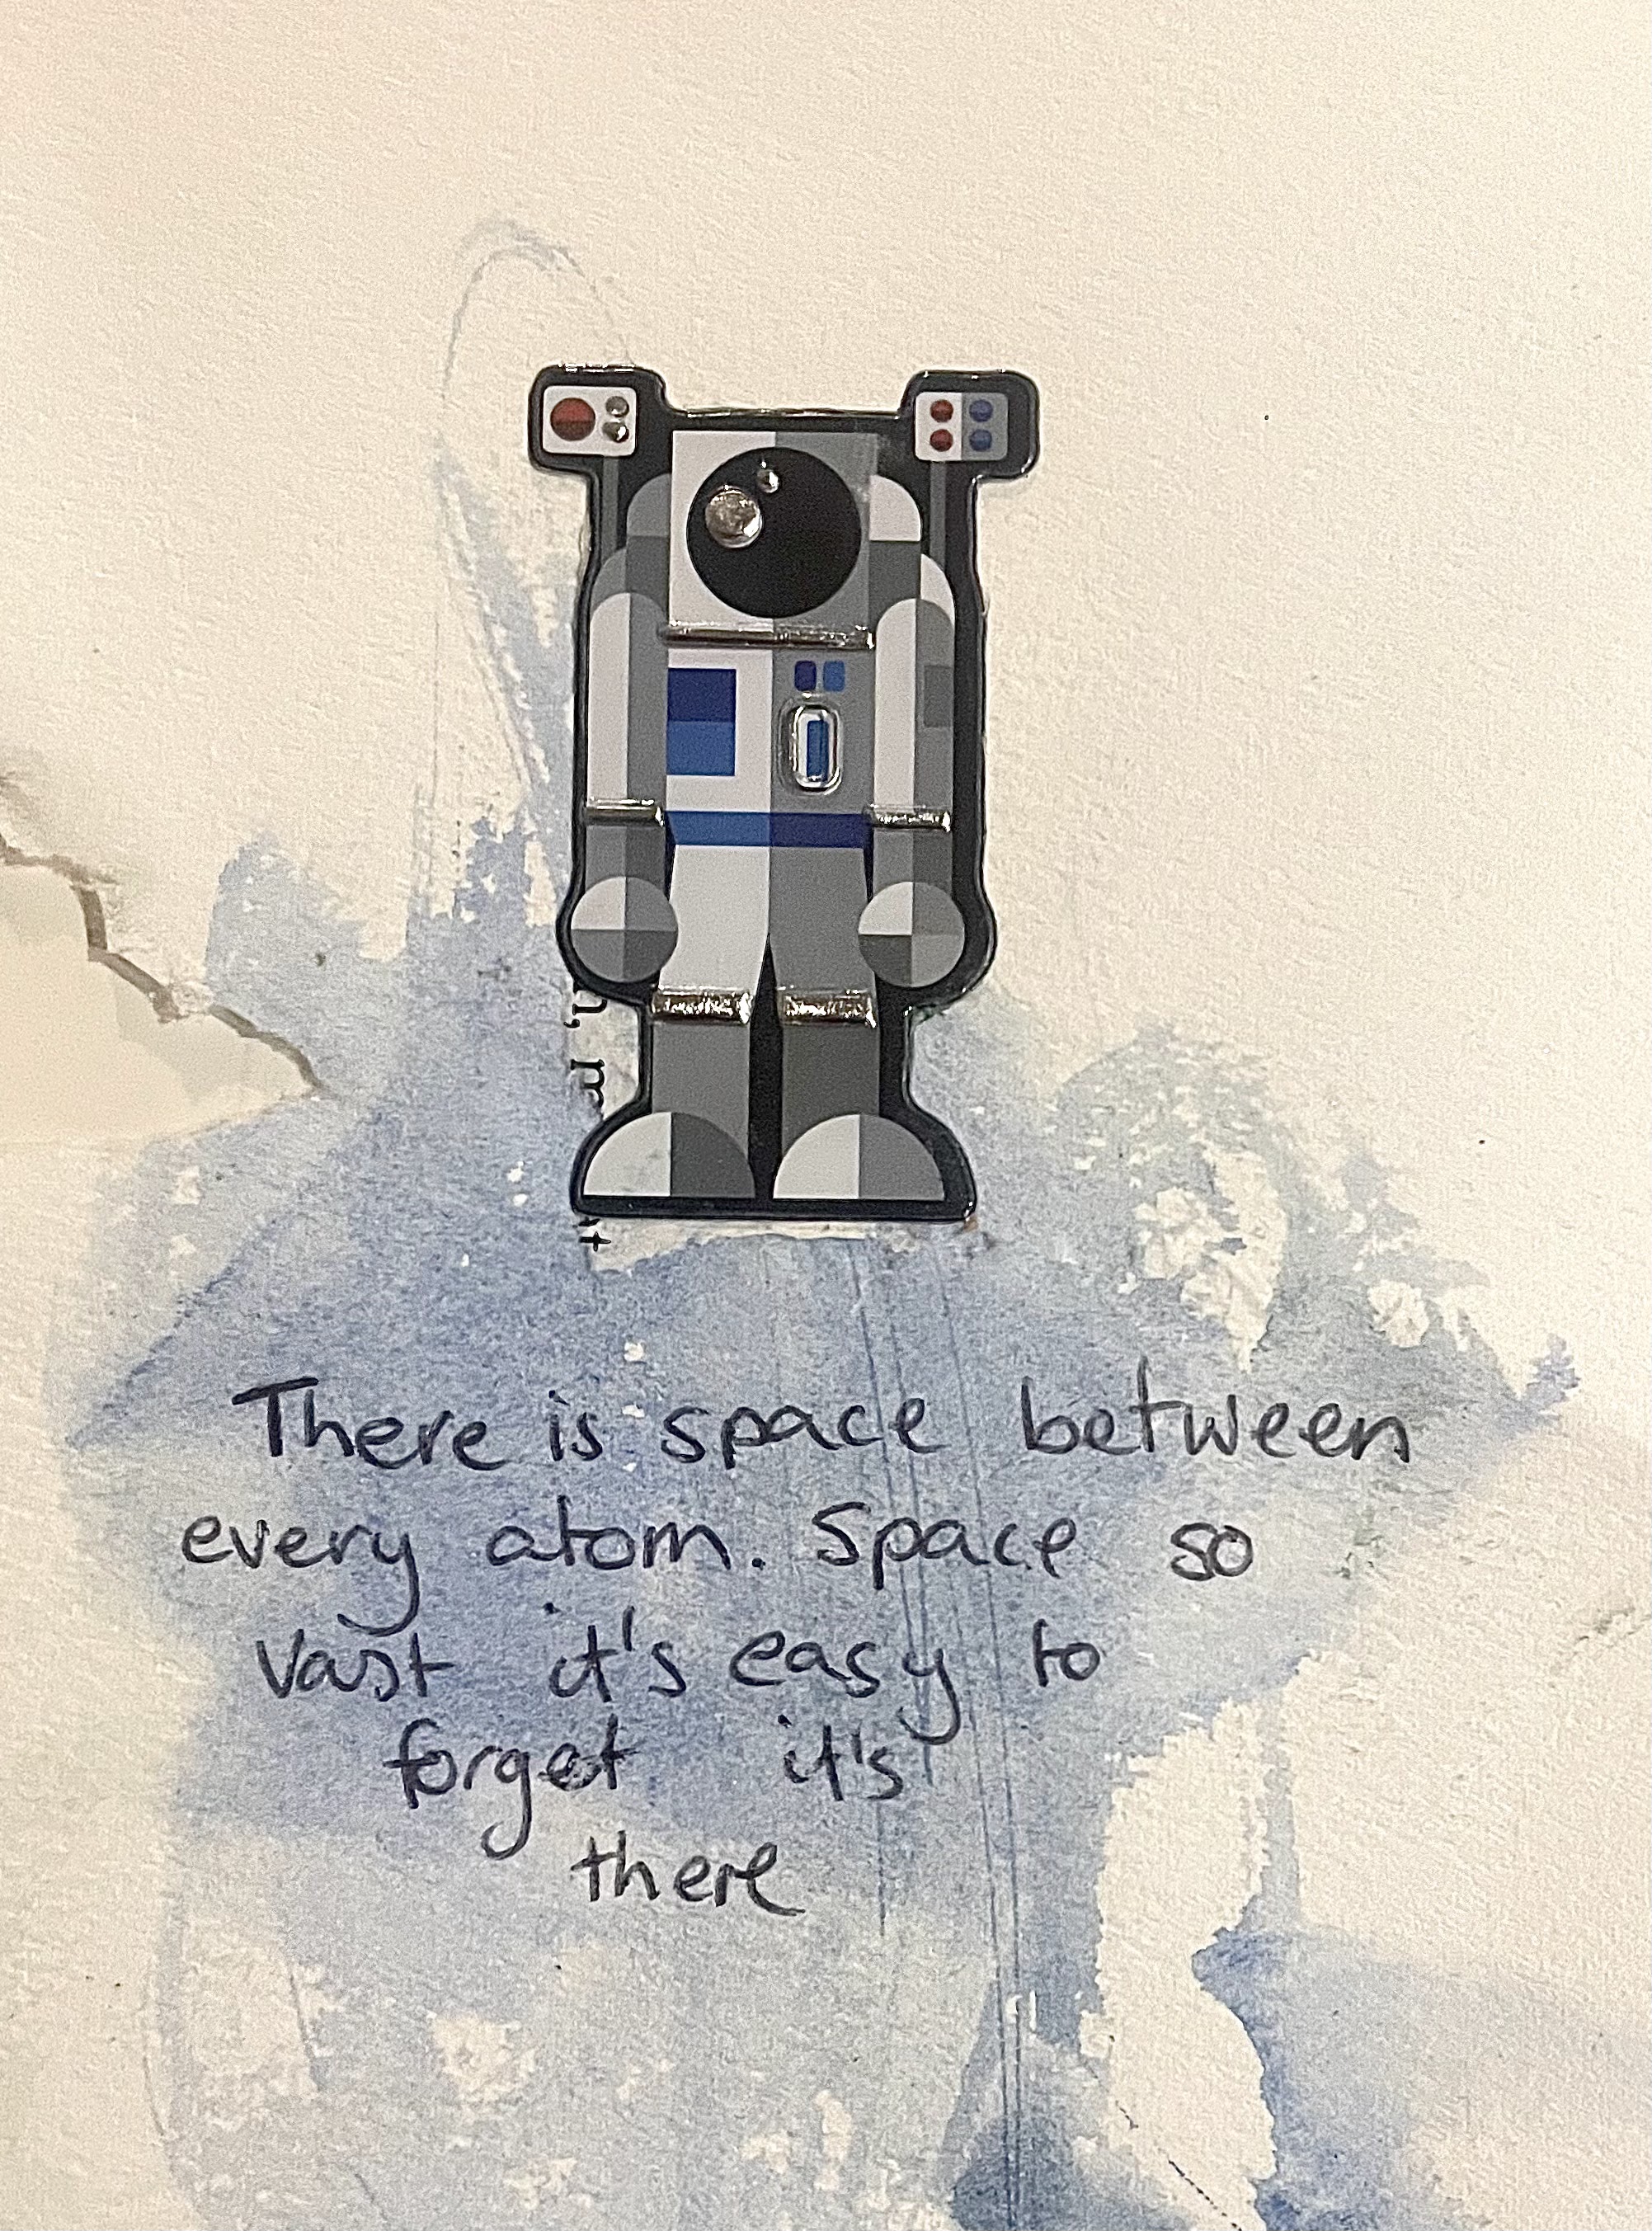 There is space between
every atom. Space so
vast it's easy to
forget it's
there